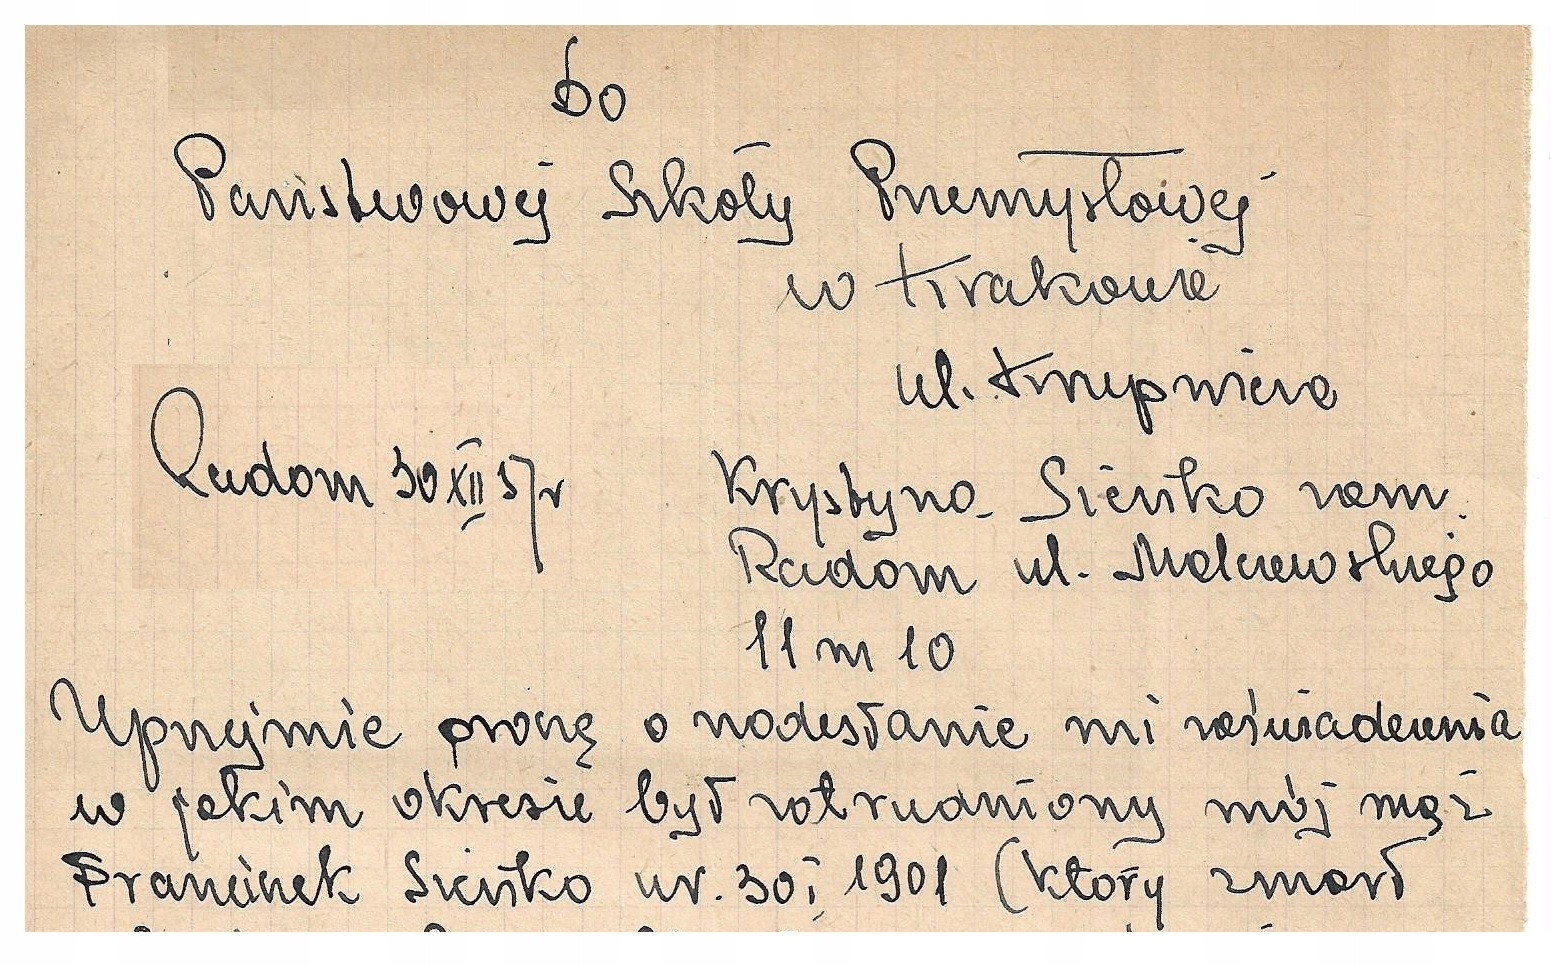 Do
Państwowej Szkoły Przemysłowej
w Krakowie
ul. Krupnicza
Radom 30 XII 57 r
Krystyna Sieńko zam.
Radom ul. Malczewskiego
11 m 10
Uprzejmie proszę o nadesłanie mi zaświadczenia
w jakim okresie był zatrudniony mój mąż
Franciszek Sieńko ur. 30 I 1901 (który zmarł